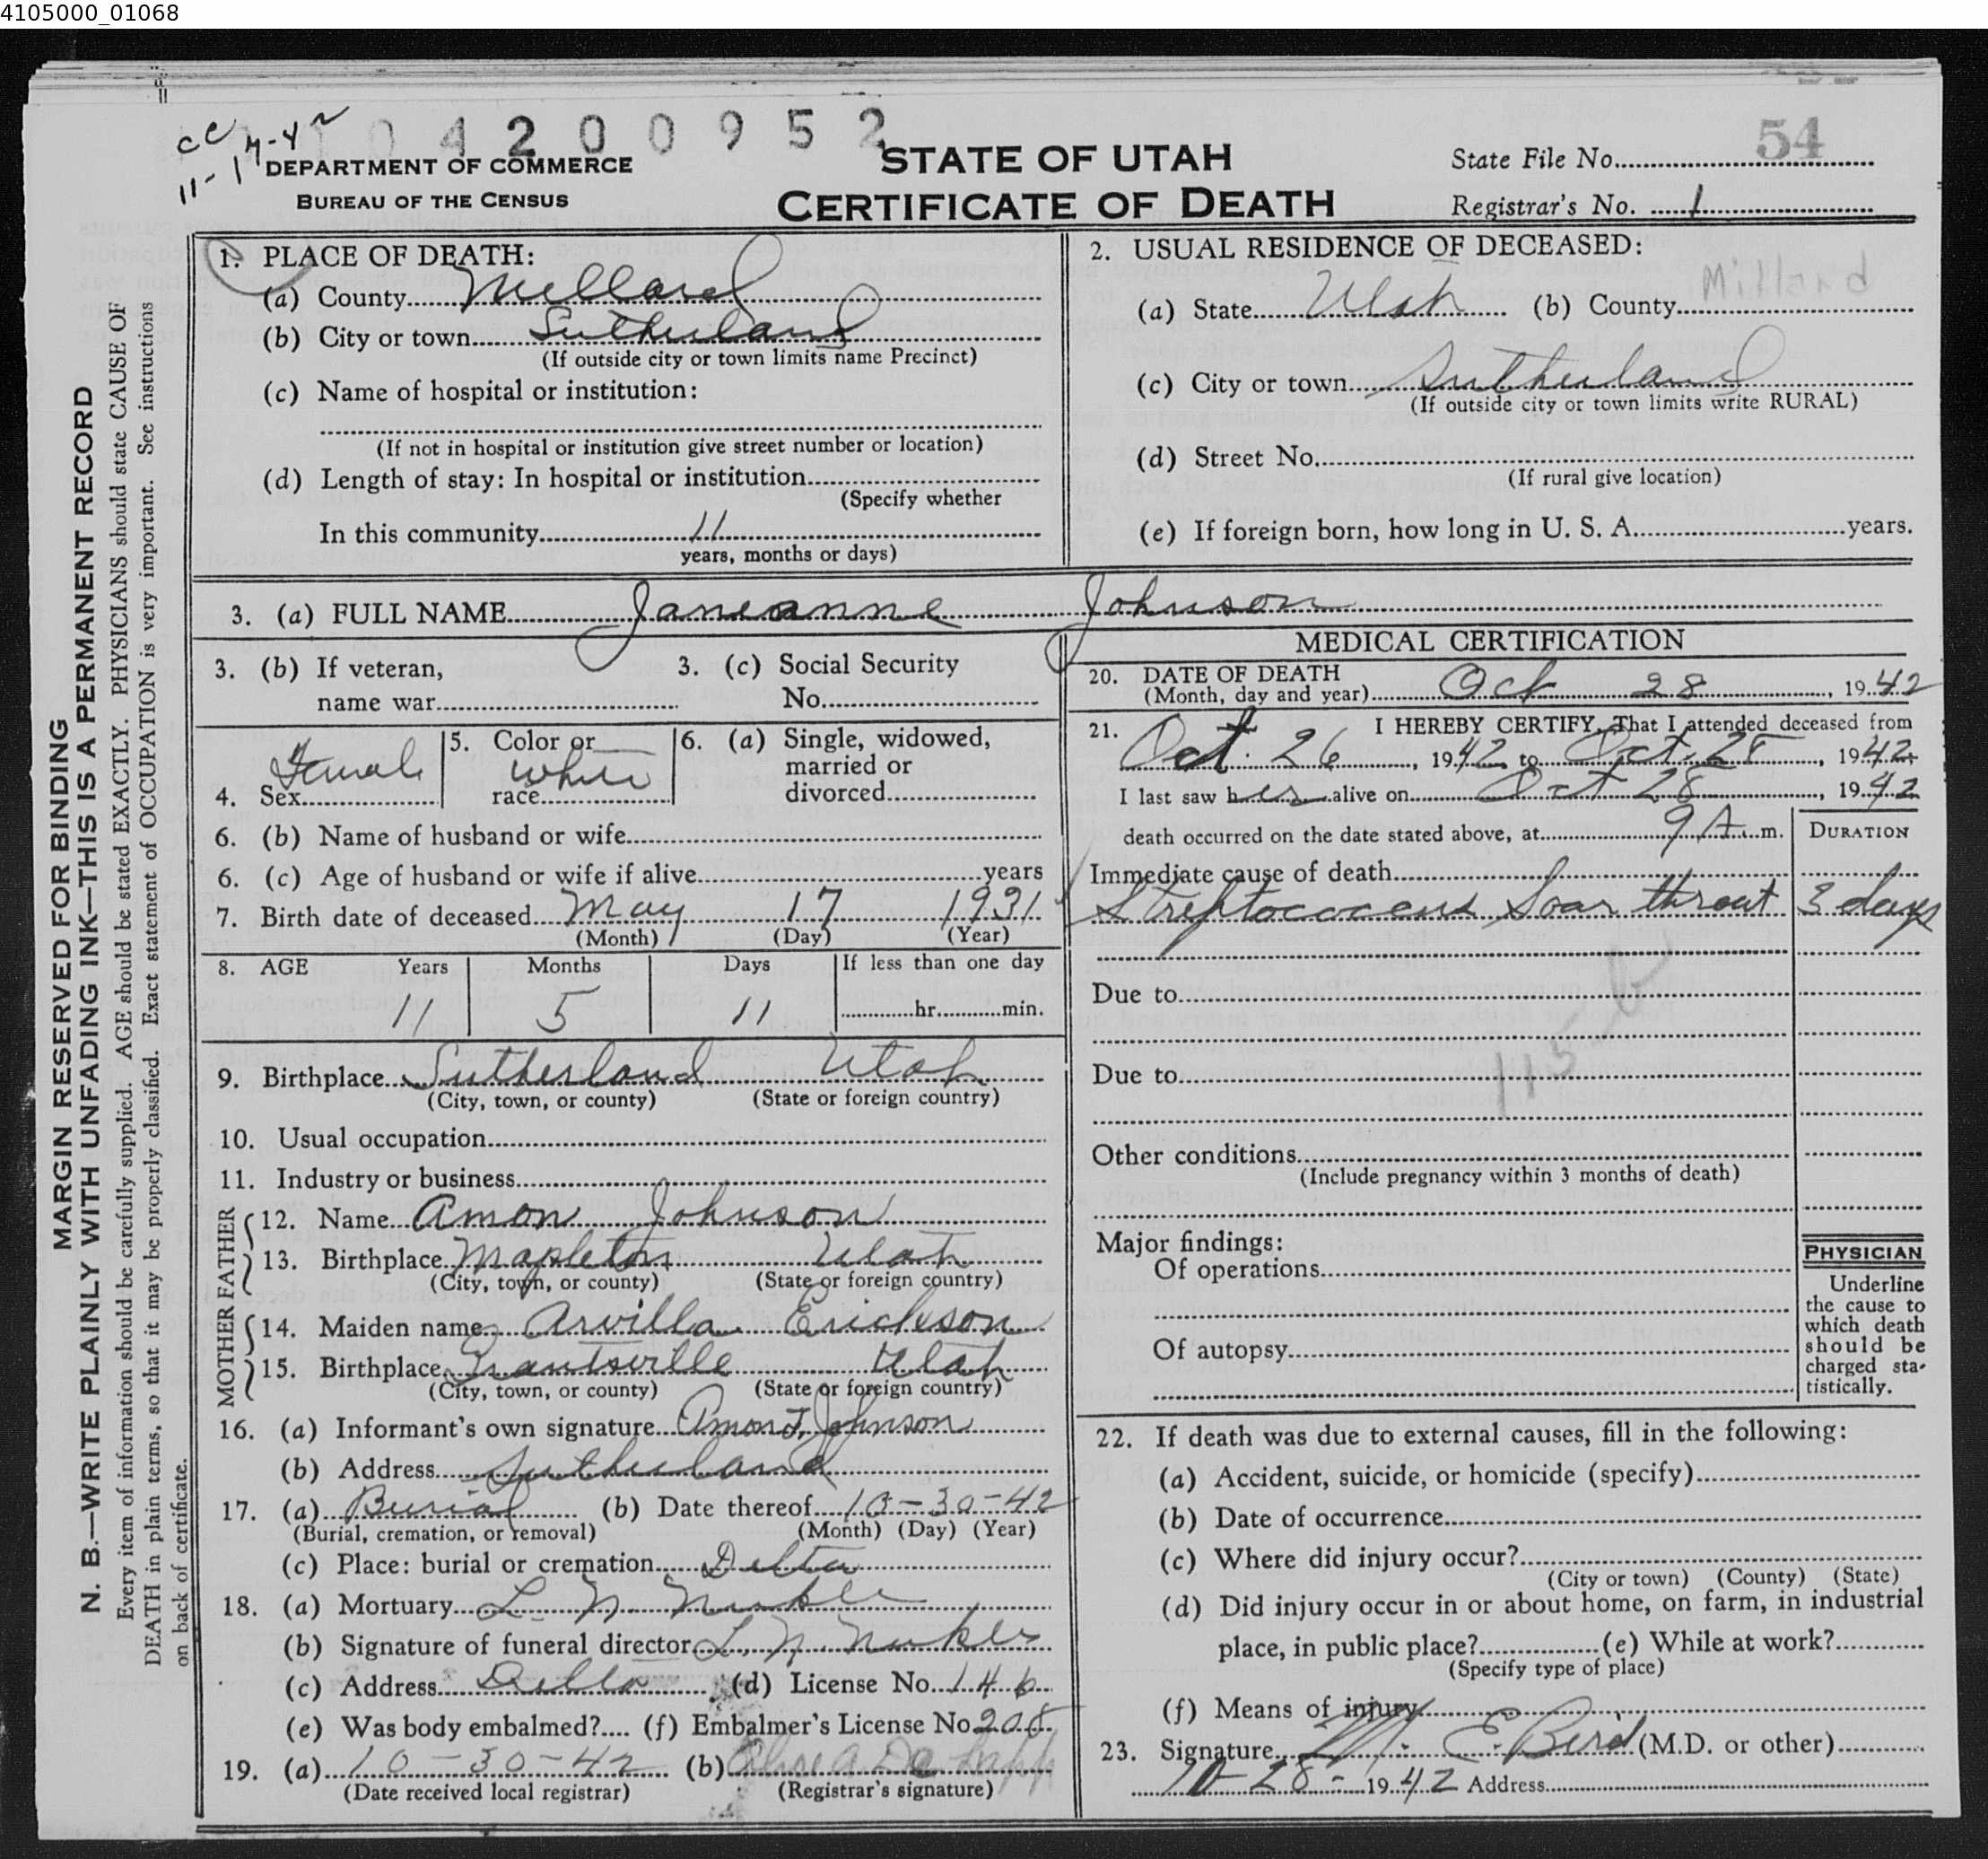 4105000_01068
CC
11-17-42
0 4 2 0 0 9 5 2
DEPARTMENT OF COMMERCE
BUREAU OF THE CENSUS
STATE OF UTAH
CERTIFICATE OF DEATH
State File No. 54
Registrar's No. 1
MARGIN RESERVED FOR BINDING
N. B.—WRITE PLAINLY WITH UNFADING INK—THIS IS A PERMANENT RECORD
Every item of information should be carefully supplied. AGE should be stated EXACTLY. PHYSICIANS should state CAUSE OF
DEATH in plain terms, so that it may be properly classified. Exact statement of OCCUPATION is very important. See instructions
on back of certificate.
1. PLACE OF DEATH:
(a) County Millard
(b) City or town Sutherland
(If outside city or town limits name Precinct)
(c) Name of hospital or institution:
(If not in hospital or institution give street number or location)
(d) Length of stay: In hospital or institution
(Specify whether
In this community 11
years, months or days)
2. USUAL RESIDENCE OF DECEASED:
(a) State Utah (b) County Millard
(c) City or town Sutherland
(If outside city or town limits write RURAL)
(d) Street No.
(If rural give location)
(e) If foreign born, how long in U. S. A. years.
3. (a) FULL NAME Janeanne Johnson
3. (b) If veteran,
name war
3. (c) Social Security
No.
4. Sex Female
5. Color or
race white
6. (a) Single, widowed,
married or
divorced
6. (b) Name of husband or wife
6. (c) Age of husband or wife if alive years
7. Birth date of deceased May 17 1931
(Month) (Day) (Year)
8. AGE Years Months Days If less than one day
11 5 11 hr. min.
9. Birthplace Sutherland Utah
(City, town, or county) (State or foreign country)
10. Usual occupation
11. Industry or business
FATHER
12. Name Amon Johnson
13. Birthplace Mapleton Utah
(City, town, or county) (State or foreign country)
MOTHER
14. Maiden name Arvilla Erickson
15. Birthplace Grantsville Utah
(City, town, or county) (State or foreign country)
16. (a) Informant's own signature Amon J. Johnson
(b) Address Sutherland
17. (a) Burial (b) Date thereof 10-30-42
(Burial, cremation, or removal) (Month) (Day) (Year)
(c) Place: burial or cremation Delta
18. (a) Mortuary L. N.
(b) Signature of funeral director L. N.
(c) Address Delta (d) License No. 146
(e) Was body embalmed? (f) Embalmer's License No 205
19. (a) 10-30-42 (b)
(Date received local registrar) (Registrar's signature)
MEDICAL CERTIFICATION
20. DATE OF DEATH
(Month, day and year) Oct 28, 1942
21. I HEREBY CERTIFY, That I attended deceased from
Oct. 26, 1942 to Oct. 28, 1942
I last saw her alive on Oct 28, 1942
death occurred on the date stated above, at 9 A. m.
DURATION
Immediate cause of death
Streptococcus Soar throat 3 days
Due to
115 b
Due to
Other conditions
(Include pregnancy within 3 months of death)
Major findings:
Of operations
Of autopsy
PHYSICIAN
Underline
the cause to
which death
should be
charged sta-
tistically.
22. If death was due to external causes, fill in the following:
(a) Accident, suicide, or homicide (specify)
(b) Date of occurrence
(c) Where did injury occur?
(City or town) (County) (State)
(d) Did injury occur in or about home, on farm, in industrial
place, in public place? (e) While at work?
(Specify type of place)
(f) Means of injury
23. Signature M. E. Bird (M.D. or other)
10-28- 1942 Address